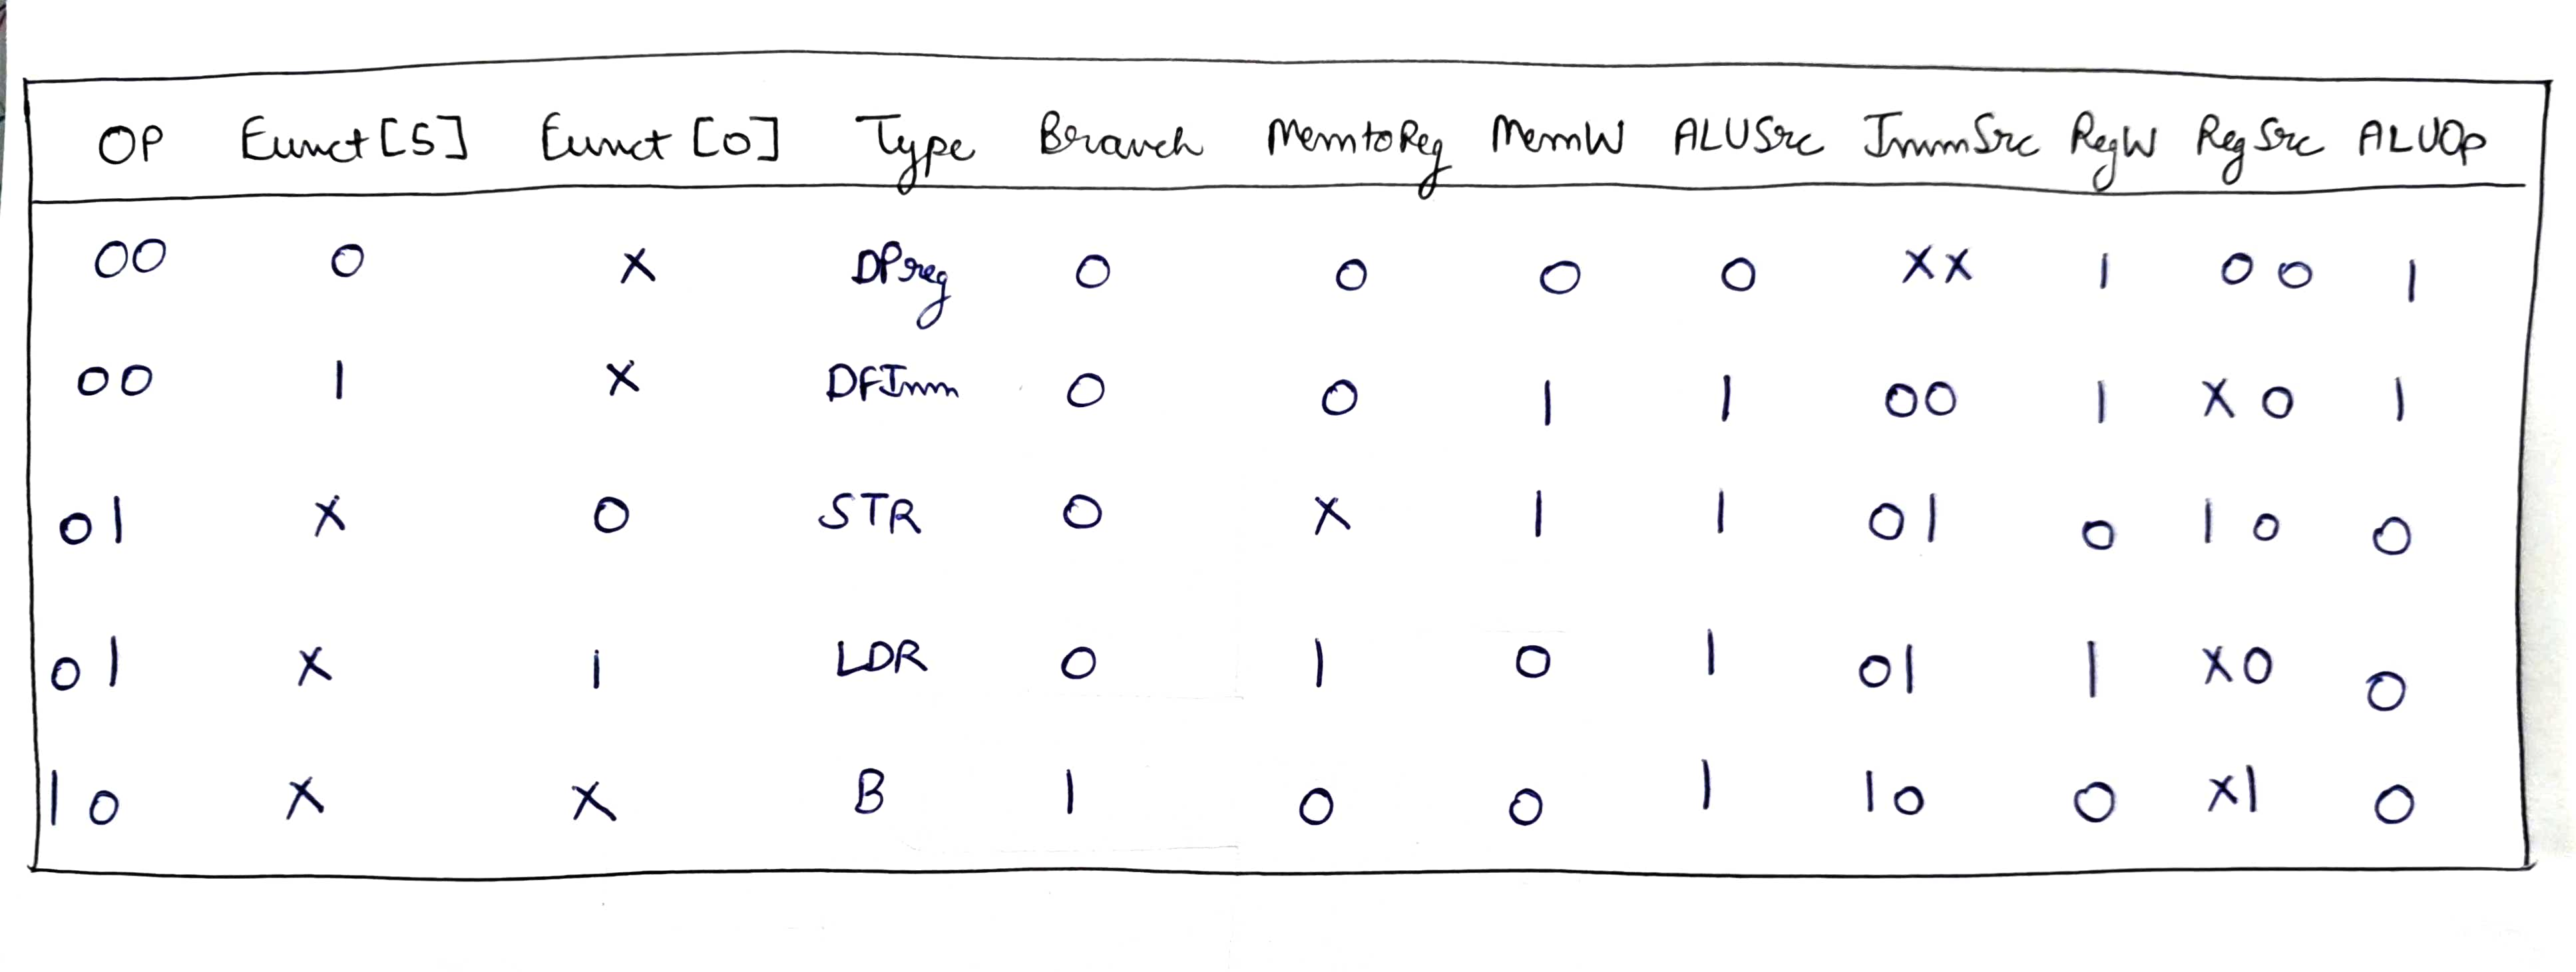 OP Funct[5] Funct[0] Type Branch MemtoReg MemW ALUSrc ImmSrc RegW RegSrc ALUOp
00 0 X DPreg 0 0 0 0 XX 1 00 1
00 1 X DFImm 0 0 1 1 00 1 X0 1
01 X 0 STR 0 X 1 1 01 0 10 0
01 X 1 LDR 0 1 0 1 01 1 X0 0
10 X X B 1 0 0 1 10 0 X1 0